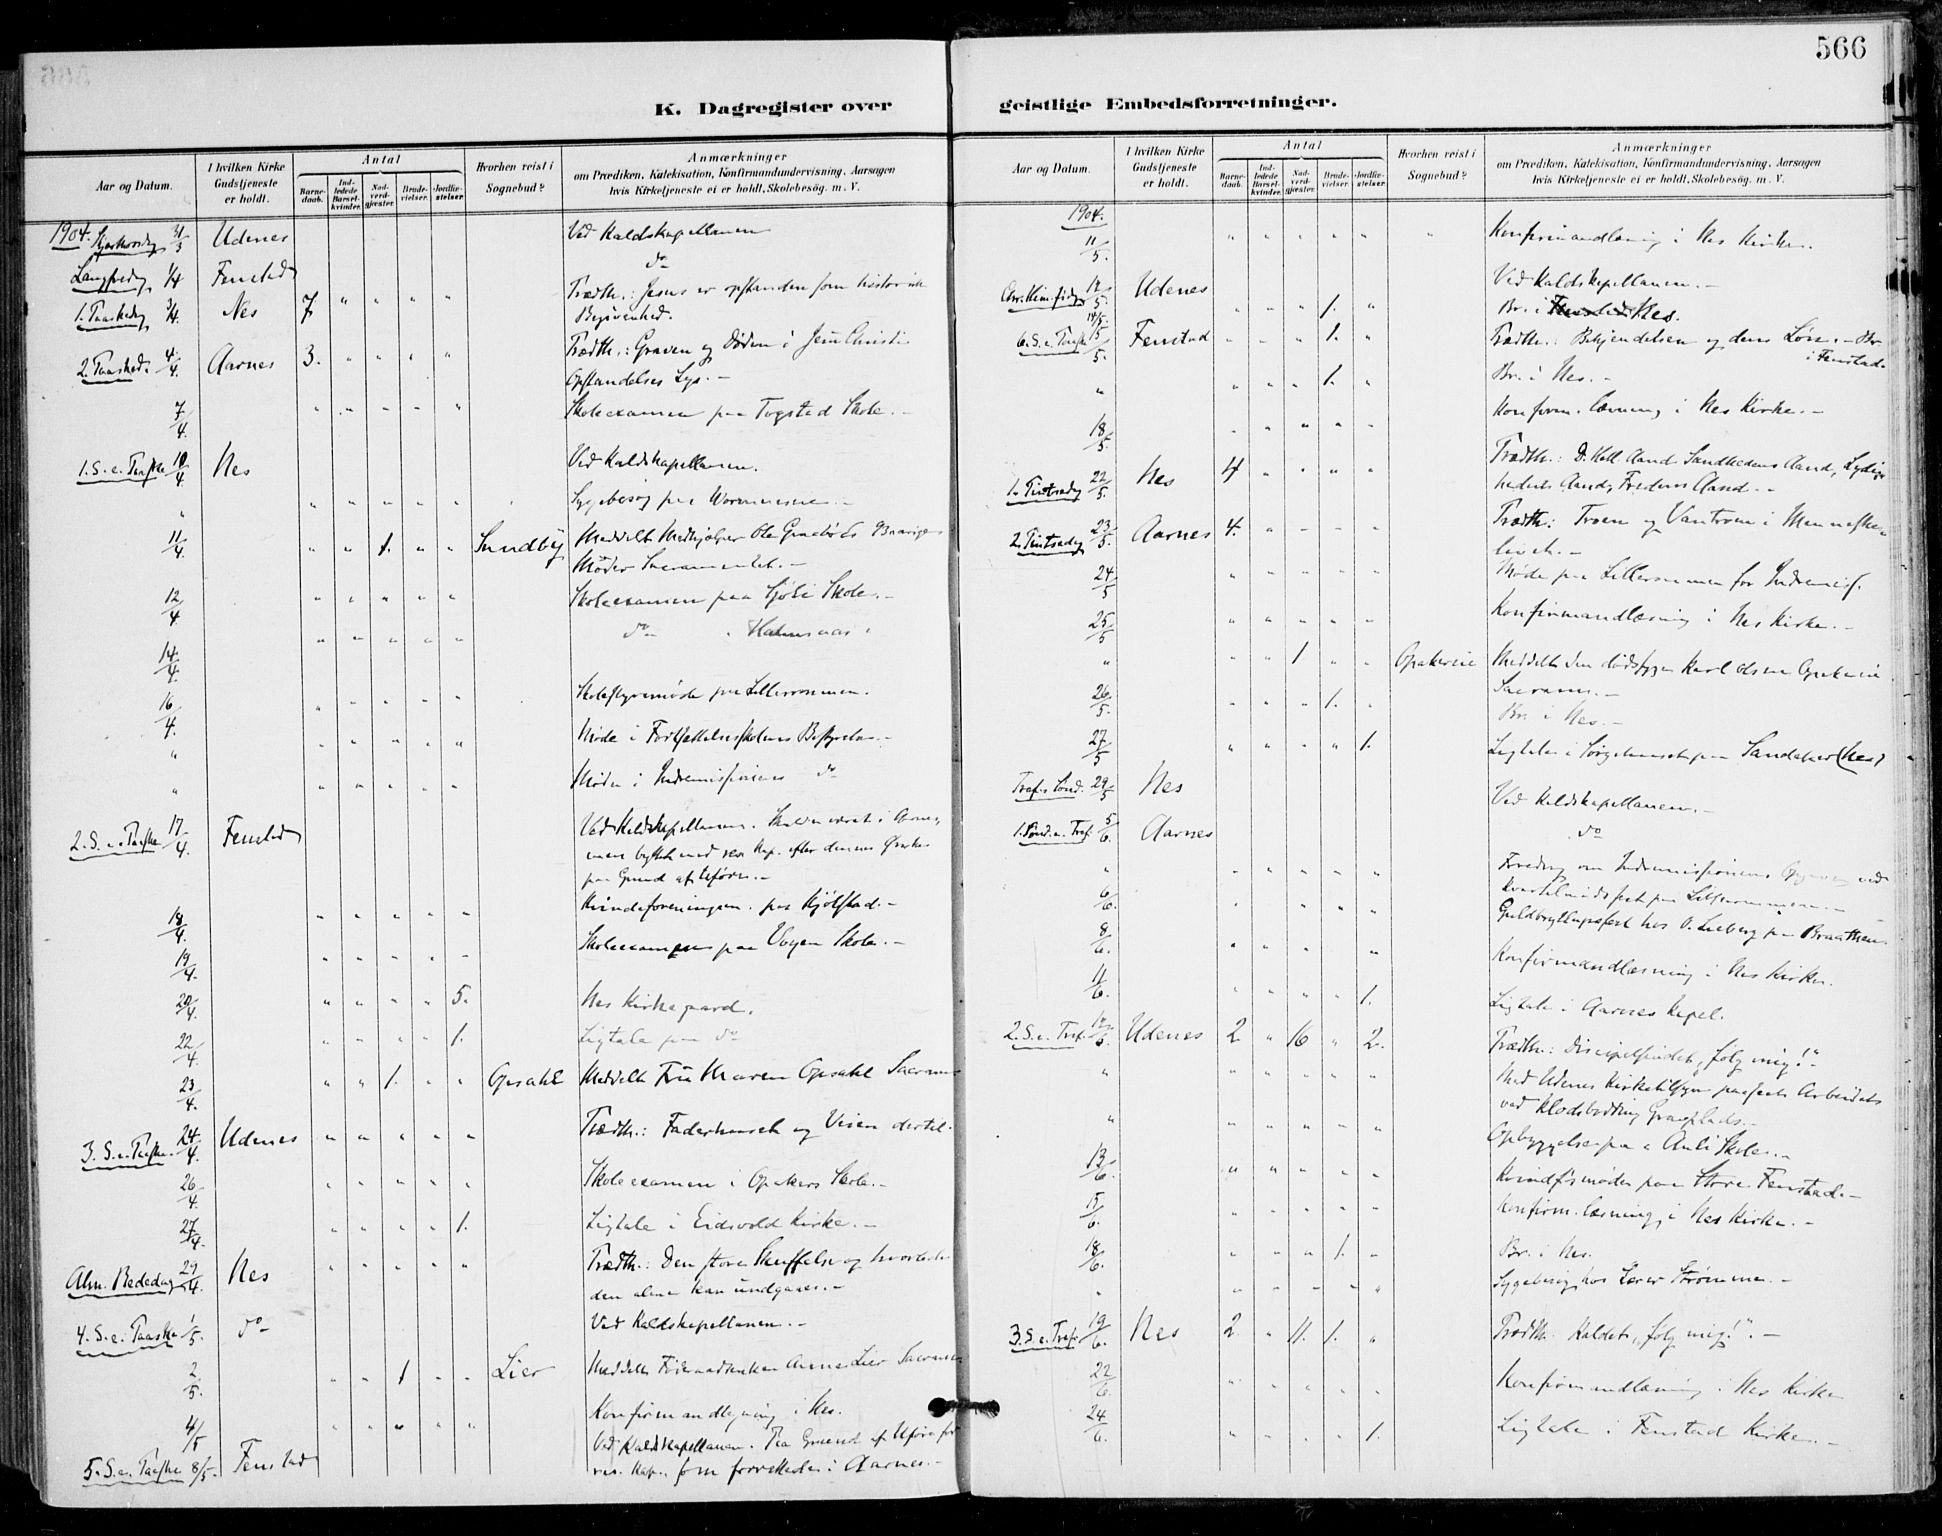 566
K. Dagregister over
Aar og Datum.
I hvilken Kirke Gudstjeneste er holdt.
Antal
Barne-daab.
Ind-ledede Barsel-kvinder.
Nad-verd-gjæster.
Brude-vielser.
Jordfæ-stelser.
Hvorhen reist i Sognebud?
Anmærkninger
om Prædiken, Katekisation, Konfirmandundervisning, Aarsagen
hvis Kirketjeneste ei er holdt, Skolebesøg. m. V.
1904. Skjærthorsdag 31/3 Udenes Ved Kaldskapellanen
Langfredag 1/4 Fenstad do
1. Paaskedag 3/4. Nes 7 " " " " Præd.th.: Jesus er opstanden som historisk
Begivenhed.
2. Paasked. 4/4. Aarnes 3. " " " " Præd.th.: Graven og Døden i Jesu Christi
Opstandelses Lys. –
7/4. " " " " " Skoleexamen paa Togstad Skole. –
1. S. e. Paaske 10/4 Nes Ved Kaldskapellanen.
" " " " " " Sygebesøg paa
11/4. " " 1. " " Sundby Meddelt Medhjælper Ole
Moder Sacramentet. –
12/4 " " " " " Skoleexamen paa Skole. –
14/4. " " " " " do "
16/4. " " " " " Skolestyremøde paa Lillerommen.
" " " " " " Møde i Fortsættelsesskolens Bestyrelse. –
" " " " " " Møde i Indremissionens do
2. S. e. Paaske 17/4. Fenstad Ved Kaldskapellanen. Skulde været i Aarnes,
men byttet med res. Kap. efter dennes Ønske
paa Grund af Uføre. –
18/4. " " " " " Kvindeforeningen paa Kjølstad. –
19/4. " " " " " Skoleexamen paa Vogen Skole. –
20/4. " " " " 5. Nes Kirkegaard.
22/4. " " " " 1. Ligtale paa do
23/4. " " 1. " " Opsahl Meddelt Fru Maren Opsahl Sacram.
3. S. e. Paaske. 24/4. Udenes " " " " " Præd.th.: Faderhuset og Veien dertil.
26/4. " " " " " Skoleexamen i Opakers Skole. –
27/4. " " " " 1. Ligtale i Eidsvold Kirke. –
Alm. Bededag 29/4. Nes " " " " " Præd.th.: Den store Skuffelse og hvorledes
den alene kan undgaaes. –
4. S. e. Paaske 1/5. do Ved Kaldskapellanen. –
2/5. " " 1 " " Lier Meddelt Anne Lier Sacram.
4/5 " " " " " Konfirmandlæsning i Nes.
5. S. e. Paaske 8/5. Fenstad Ved Kaldskapellanen. Paa Grund af Uføre for
res. Kap. som forrettede i Aarnes. –
geistlige Embedsforretninger.
Aar og Datum.
I hvilken Kirke Gudstjeneste er holdt.
Antal
Barne-daab.
Ind-ledede Barsel-kvinder.
Nad-verd-gjæster.
Brude-vielser.
Jordfæ-stelser.
Hvorhen reist i Sognebud?
Anmærkninger
om Prædiken, Katekisation, Konfirmandundervisning, Aarsagen
hvis Kirketjeneste ei er holdt, Skolebesøg. m. V.
1904.
11/5. " " " " " " Konfirmandlæsning i Nes Kirke.
Chr. Himf.dag 12/5. Udenes Ved Kaldskapellanen. –
14/5. " " " 1. " Br. i Nes.
6. S. e. Paaske 15/5. Fenstad " " " 1. " Præd.th.: Bekjendelsen og dens Løn. – Br.
i Fenstad.
" " " " 1. " Br. i Nes. –
18/5. " " " " " Konfirm. læsning i Nes Kirke. –
1. Pintsedag 22/5. Nes 4 " " " " Præd.th.: D. Hell. Aand Sandhedens Aand, Lydig-
hedens Aand, Fredens Aand. –
2. Pintsedag 23/5. Aarnes 4. " " " " Præd.th.: Troen og Vantroen i Menneske-
livet. –
24/5 " " " " " Møde paa Lillerommen for Indremis.
25/5 " " " " " Konfirmandlæsning i Nes Kirke. –
" " " 1. " " Opakerie Meddelt den dødssyge Karl Olsen Opakerie
Sacram. –
26/5. " " " 1. " Br. i Nes. –
27/5 " " " " 1. Ligtale i Sørgehuset paa Sandaker (Nes)
Tref. Sønd. 29/5 Nes Ved Kaldskapellanen. –
1. Sønd. e. Tref. 5/6. Aarnes do
" " " " " " Foredrag om Indremissionens ved
paa Lillerommen. –
6/6. " " " " " Guldbryllupsfest hos O. paa Braathen.
8/6. " " " " " Konfirmandlæsning i Nes Kirke.
11/6. " " " " 1. Ligtale i Aarnes Kapel.
2. S. e. Tref. 12/5. Udenes 2 " 16 " 2. Præd.th.: Discipelsindet, "følg mig!"
" " " " " " Med Udenes Kirketilsyn Arbeidet
ved Gravplads. –
" " " " " " Opbyggelse paa Auli Skole. –
13/6. " " " " " Kvindf.smøde paa Store Fenstad. –
15/6. " " " " " Konfirm. læsning i Nes Kirke. –
18/6. " " " 1. " Br. i Nes.
" " " " " " Sygebesøg hos Lærer Strømmen. –
3. S. e. Tref. 19/6. Nes 2 " 11. 1. " Præd.th.: Kaldet, "følg mig!". –
22/6. " " " " " Konfirmandlæsning i Nes Kirke
24/6. " " " " 1. Ligtale i Fenstad Kirke. –